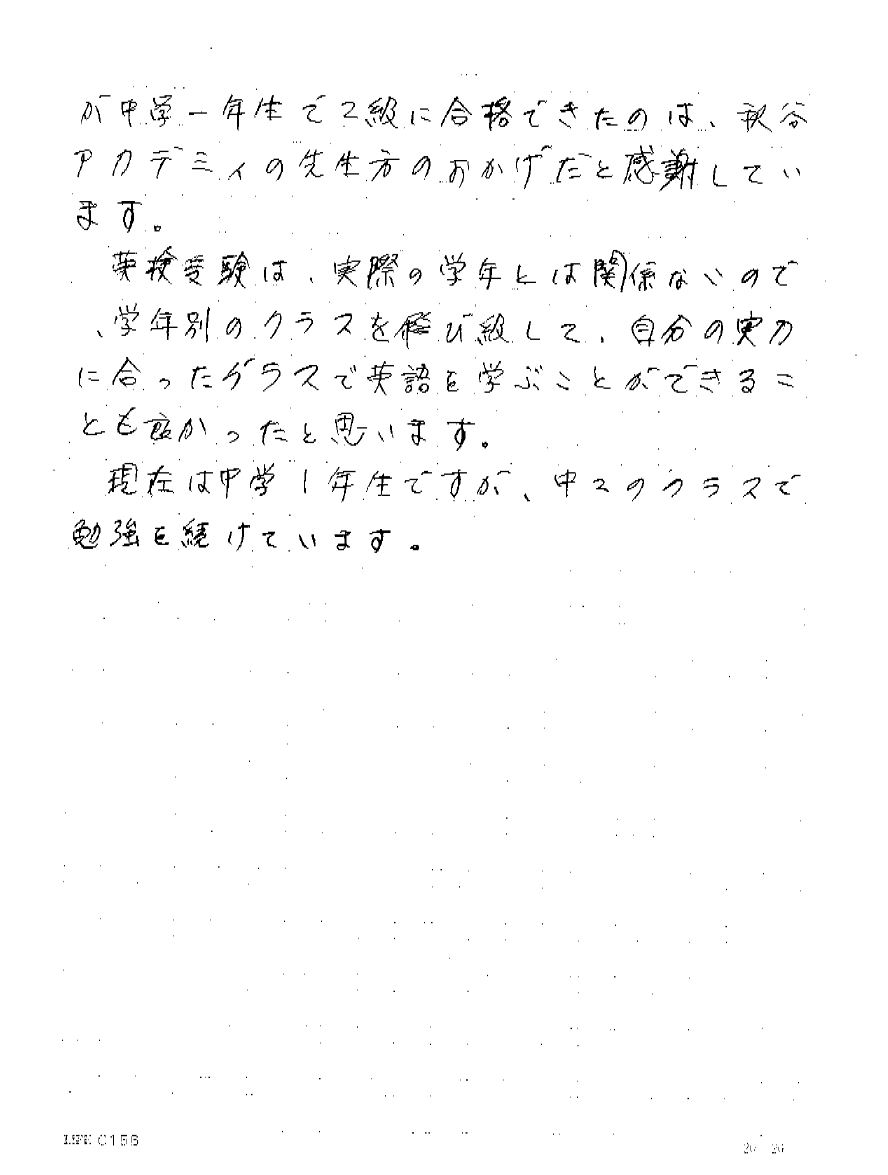 が中学一年生で2級に合格できたのは、秋谷
アカデミィの先生方のおかげだと感謝してい
ます。
英検受験は、実際の学年とは関係ないので
、学年別のクラスを飛び級して、自分の実力
に合ったクラスで英語を学ぶことができるこ
とも良かったと思います。
現在は中学1年生ですが、中2のクラスで
勉強を続けています。
LIFE C156
20 20